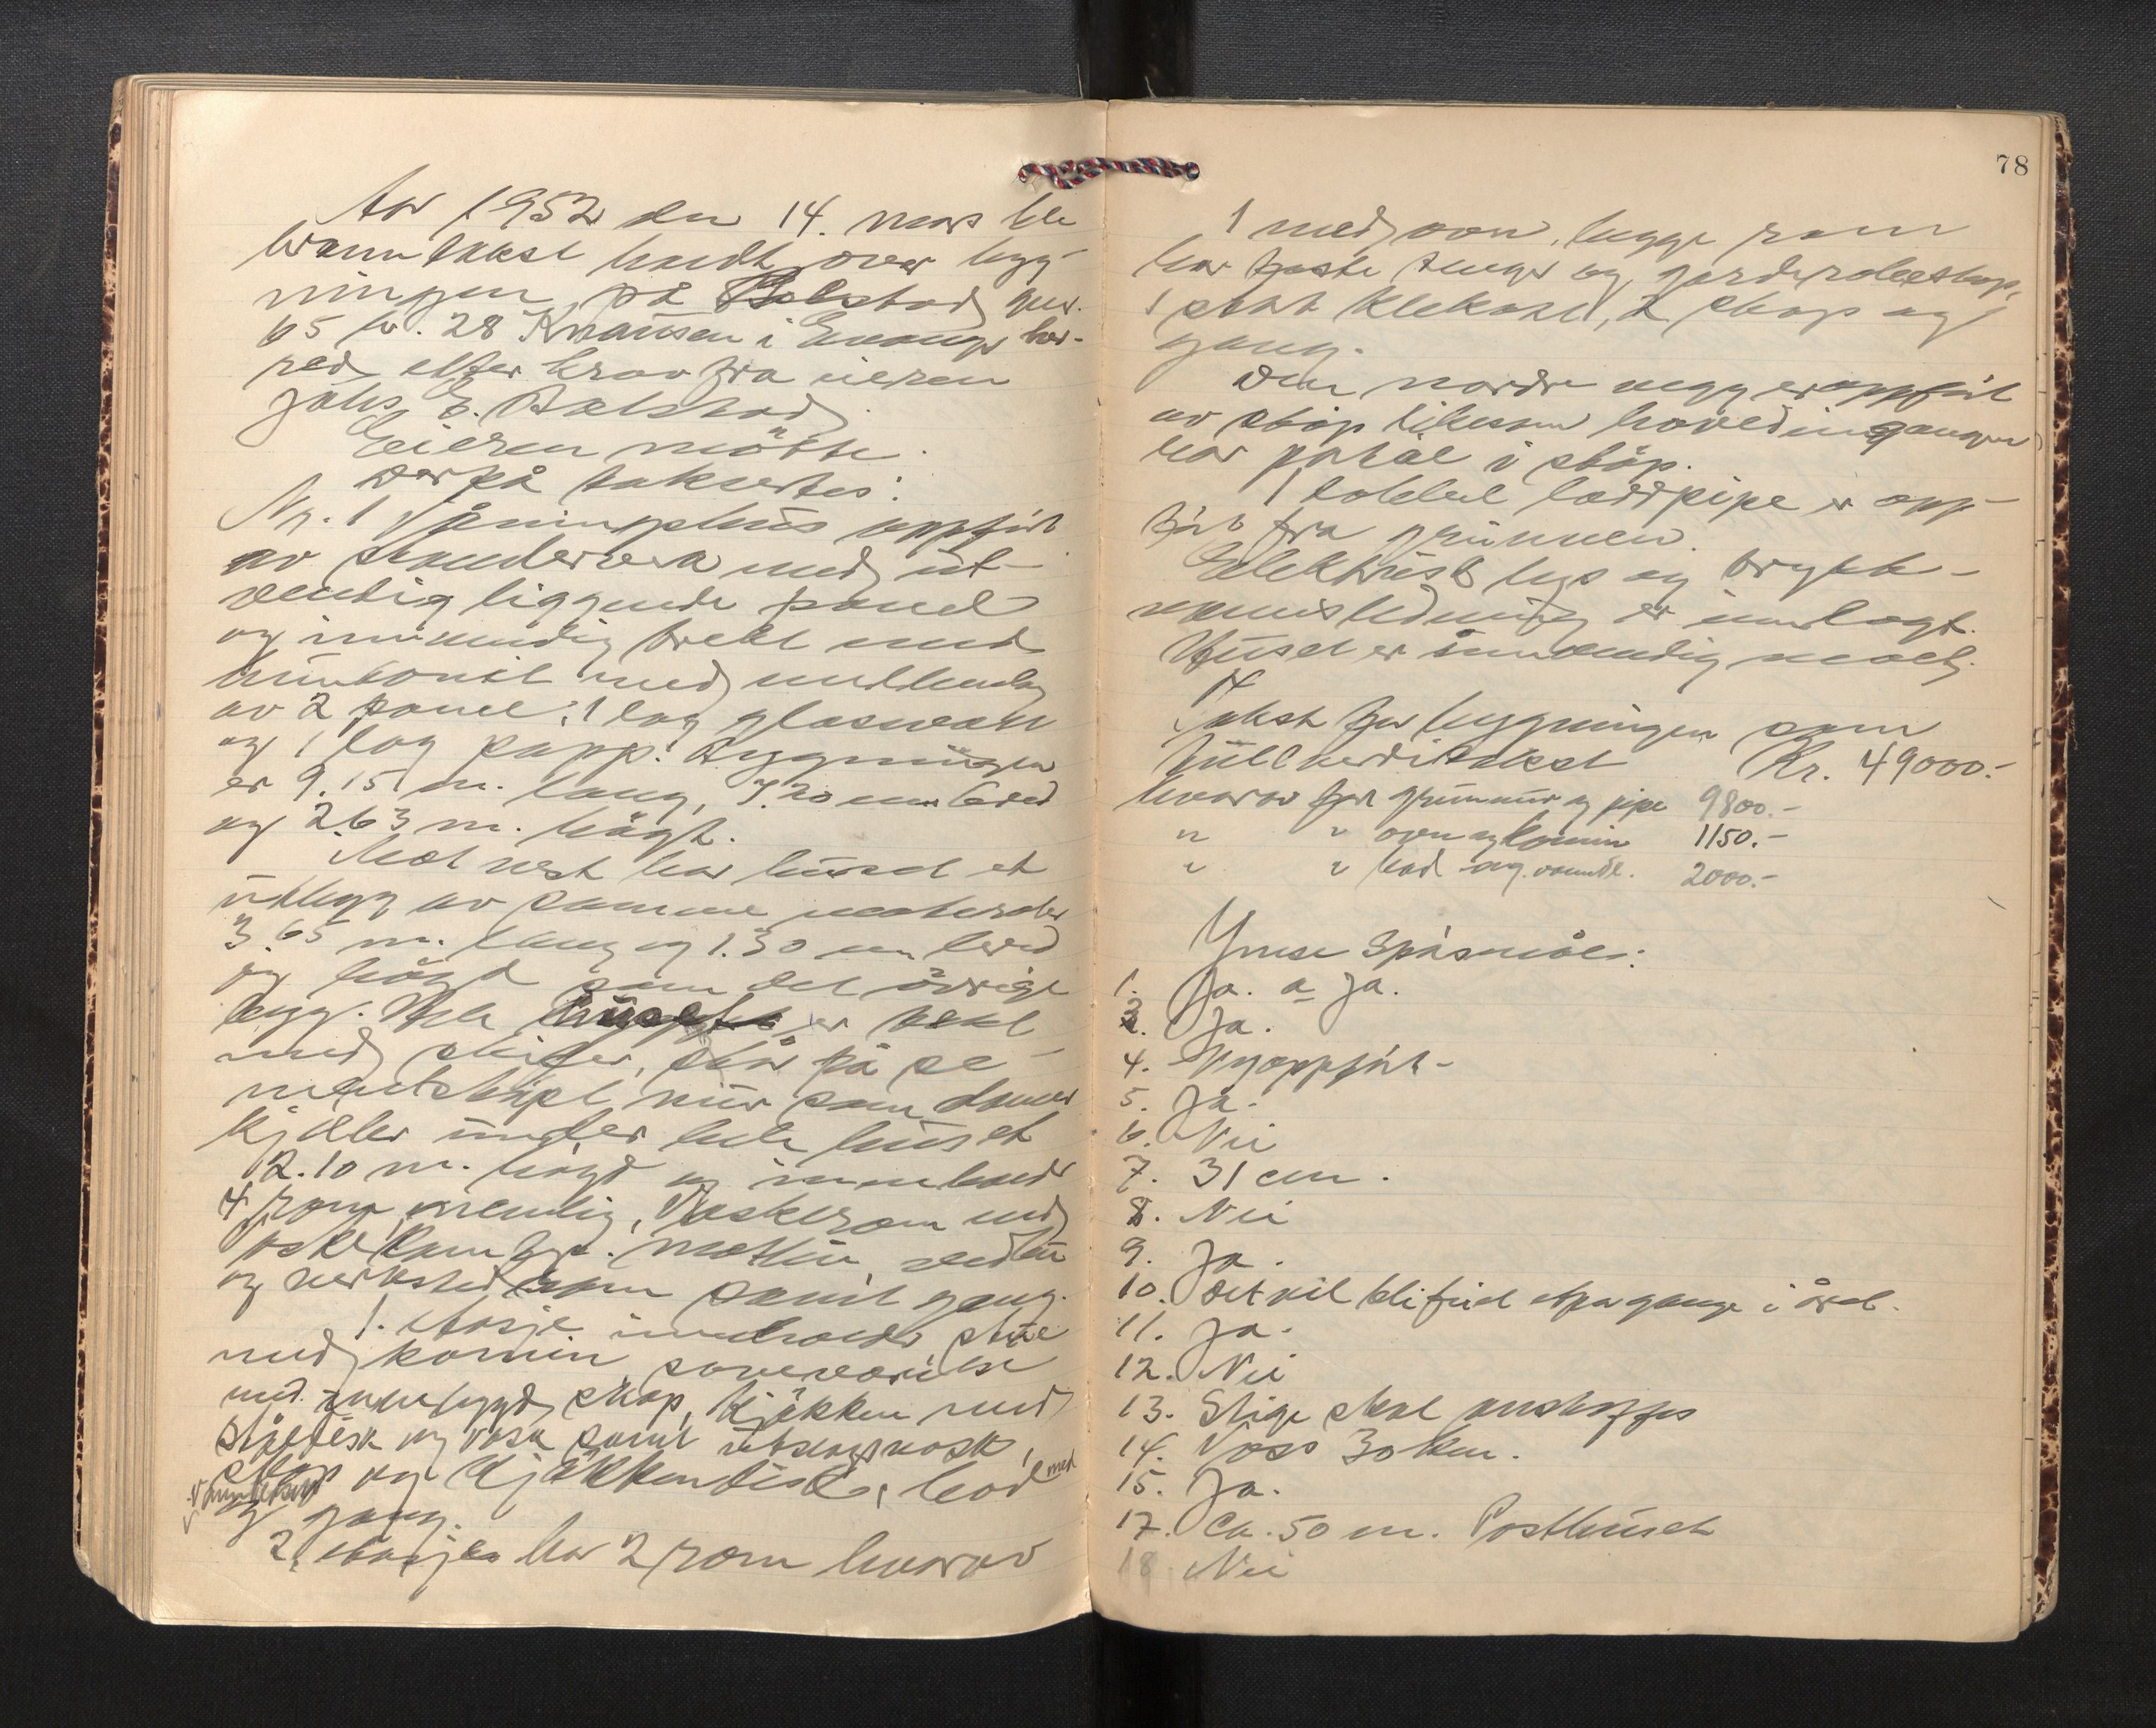 Aar 1952 den 14. mars ble
branntakst holdt over byg-
ningen på Bolstad gnr.
65 br. 28 Knausen i Evanger her-
red etter krav fra eieren
Johs E. Bolstad.
Eieren møtte.
Derpå taksertes:
Nr. 1 Våningshus oppført
av binderverk med ut-
vendig liggende panel
og innvendig trekt med
huntonit med mellemlag
av 2 panel, 1 lag glasvatt
og 1 lag papp. Bygningen
er 9.15 m. lang, 7.20 m bred
og 263 m. högt.
Mot vest har huset et
utbygg av samme materialer
3.65 m. lang og 1.30 m bred
og högd som det övrige
bygg. Hele er tekt
med skifer, står på se-
mentstöpt mur som danner
kjeller under hele huset
2.10 m. högd og inneholder
4 rom nemlig, Vaskerom med
vaskekum, matbu, vedbu
og verkstedrom samt gang.
1. etasje inneholder stue
med komin soveværelse
med innebygd skap, kjökken med
stålbesk og vask samt utslagsvask,
skap og kjökkenbesk, bad med
og gang.
2. etasje har 2 rom hvorav
78
1 med ovn, begge rom
har faste senger og garderobeskap,
1 stort klekott, 2 skap og
gang.
Den nordre vegg er oppfört
av stöp likesom hovedinngangen
har portal i stöp.
1 dobbel loddpipe er opp-
fört fra grunnen.
Elektrisk lys og trykk-
vannsledning er innlagt.
Huset er innvendig malt.
Takst for bygningen som
fullverditakst Kr. 49000.-
hvorav for grunnmur og pipe 9800.-
" " ovn og komin 1150.-
" " bad og vanndl. 2000.-
Ymse Spösmål:
1. Ja. a Ja.
3. Ja.
4. Nyoppfört -
5. Ja.
6. Nei
7. 31 cm.
8. Nei
9. Ja.
10. Det vil bli feiet et par gange i året.
11. Ja.
12. Nei
13. Stige skal anskaffes
14. Voss 30 km.
15. Ja.
17. Ca. 50 m. Posthuset
18. Nei